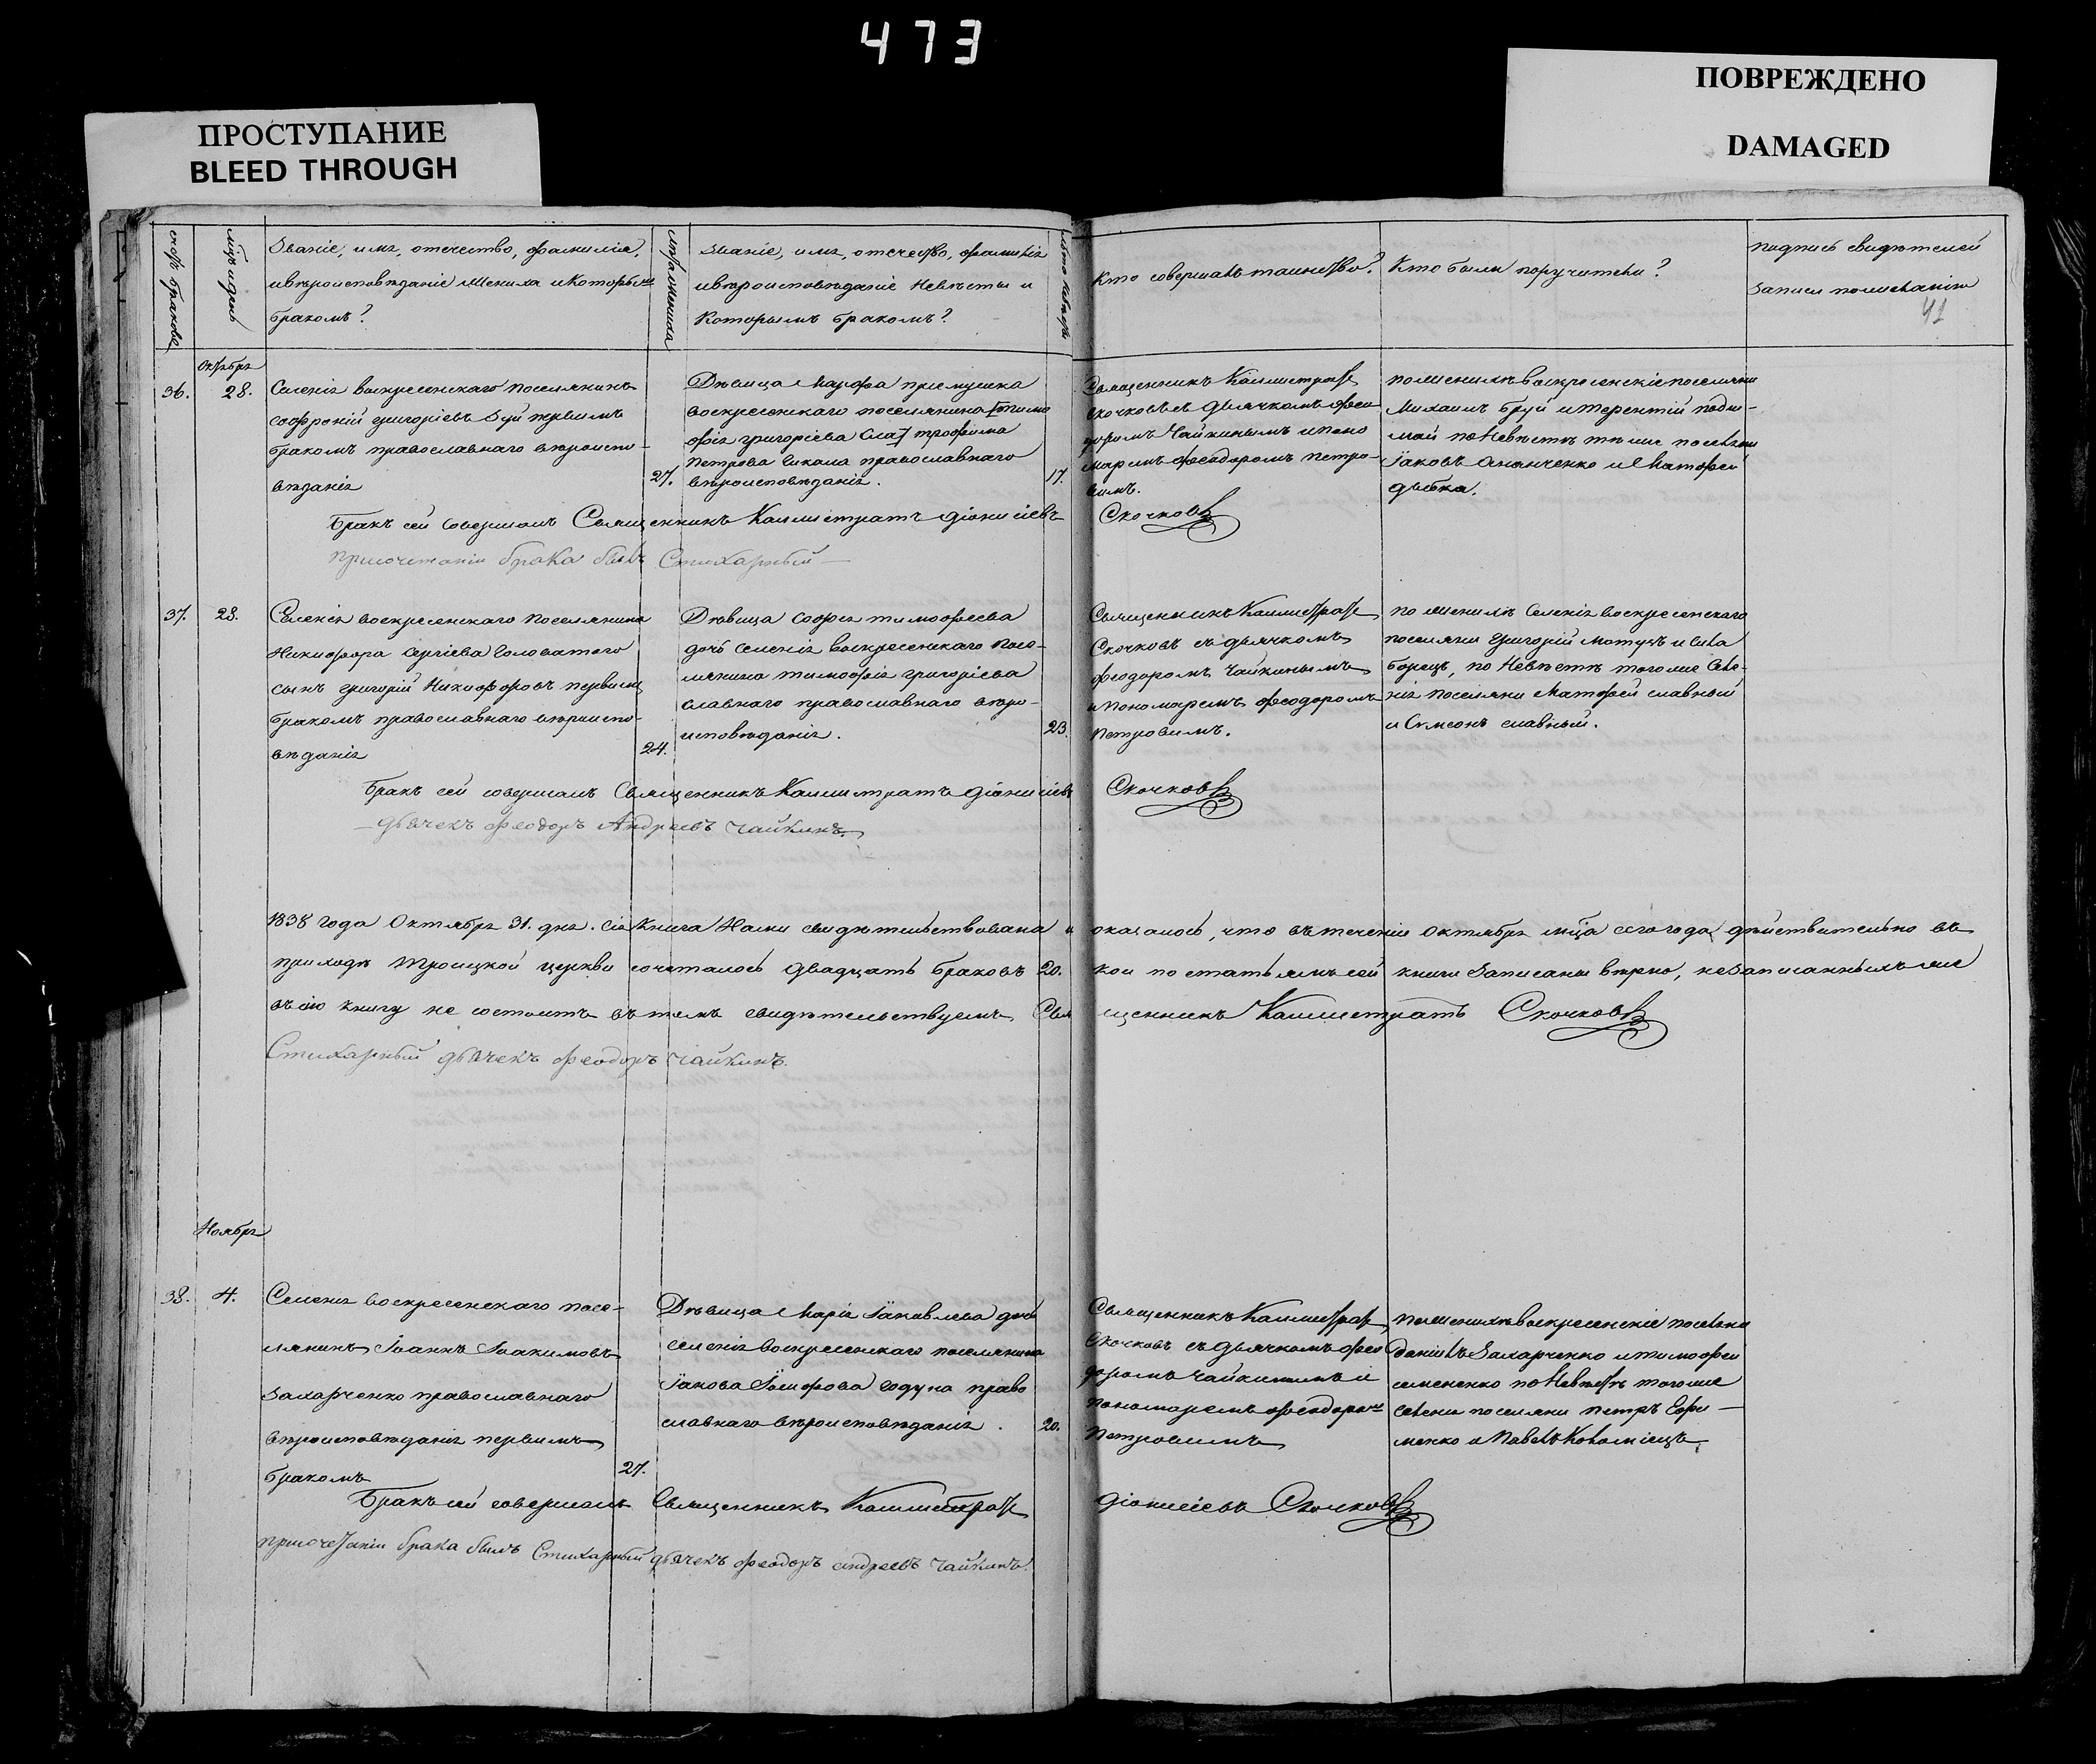 473
ПРОСТУПАНИЕ
BLEED THROUGH
ПОВРЕЖДЕНО
DAMAGED
счетъ браковъ
мѣсяцъ и день
Званіе, имя, отечество, фамилія,
и вѣроисповѣданіе жениха и которымъ
бракомъ?
лѣта жениха
Званіе, имя, отечество, фамилія
и вѣроисповѣданіе невѣсты и
которымъ бракомъ?
лѣта невѣсты
Кто совершалъ таинство?
Кто были поручители?
подпись свидѣтелей
записи по желанію
41
Октября
36.
28.
Селенія воскресенскаго поселянинъ
софроній григоріевъ Буй первымъ
бракомъ православнаго вѣроиспо-
вѣданія
27.
Дѣвица Марфа
воскресенскаго поселянина
фія григоріева трофима
Петрова православнаго
вѣроисповѣданія.
17.
Священникъ Каллистратъ
Скочковъ съ дьячкомъ Фео-
доромъ Чайкинымъ и поно
маремъ Феодоромъ Петро-
вимъ.
Скочковъ
по женихѣ воскресенскіе поселяни
Михаилъ Буй и Терентій
по Невѣстѣ тѣ же поселяни
Іаковъ Ананченко и Матфей
дибка.
Бракъ сей совершалъ Священникъ Каллистратъ Діонисіевъ
присочетаніи брака былъ Стихарный —
37.
28.
Селенія воскресенскаго поселянина
Никифора сергіева Головатого
сынъ григорій Никифоровъ первымъ
бракомъ православнаго вѣроиспо-
вѣданія
24.
Дѣвица софія тимофеева
дочь селенія воскресенскаго посе-
лянина тимофія григоріева
славнаго православнаго вѣро-
исповѣданія.
23.
Священникъ Каллистратъ
Скочковъ съ дьячкомъ
феодоромъ Чайкинымъ
и пономаремъ феодоромъ
Петровимъ.
Скочковъ
по женихѣ селенія воскресенскаго
поселяни григорій мотузъ и сила
борецъ, по Невѣстѣ того же селе-
нія поселяни Матфей славный
и Симеонъ славный.
Бракъ сей совершалъ Священникъ Каллистратъ Діонисіевъ
— дьячекъ Феодоръ Андреевъ Чайкинъ.
1838 года Октября 31. дня. сія Книга Нами свидѣтельствована и оказалось, что въ теченіи октября мца сего года дѣйствительно въ
приходѣ троицкой церкви сочеталось двадцать браковъ 20. кои по статьямъ сей книги записани вѣрно, незаписанныхъ же
въ сію книгу не состоитъ въ томъ свидѣтельствуемъ Священникъ Каллистратъ Скочковъ
Стихарный дьячекъ Феодоръ Чайкинъ.
Ноября
38.
4.
Селенія воскресенскаго посе-
лянинъ Іоаннъ Іоакимовъ
Захарченко православнаго
вѣроисповѣданія первимъ
бракомъ
27.
Дѣвица Марія Іаковлева дочь
селенія воскресенскаго поселянина
Іакова Іосифова годуна право
славнаго вѣроисповѣданія.
20.
Священникъ Каллистратъ
Скочковъ съ дьячкомъ фео
доромъ Чайкинымъ и
пономаремъ феодоромъ
Петровимъ
по женихѣ воскресенскіе поселяни
даніилъ Захарченко и тимофей
семененко по Невѣстѣ того же
селенія поселяни петръ Ефи-
менко и Павелъ Коломіецъ
Бракъ сей совершалъ Священникъ Каллистратъ Діонисіевъ Скочковъ
присочетаніи брака былъ Стихарный дьячекъ Феодоръ андреевъ Чайкинъ.